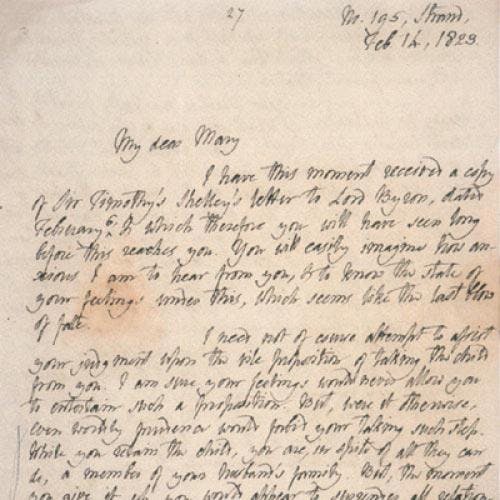 27
No. 195, Strand,
Feb 14, 1823.
My dear Mary
I have this moment received a copy
of Sir Timothy's Shelley's letter to Lord Byron, dated
February 6, & which therefore you will have seen long
before this reaches you. You will easily imagine how an-
xious I am to hear from you, & to know the state of
your feelings under this, which seems like the last blow
of fate.
I need not of course attempt to assist
your judgment upon the vile proposition of taking the child
from you. I am sure your feelings would never allow you
to entertain such a proposition. But, were it otherwise,
even worldly prudence would forbid your taking such step.
While you retain the child, you are, in spite of all they can
do, a member of your husband's family. But, the moment
you give it up, you would appear to surrender all relation